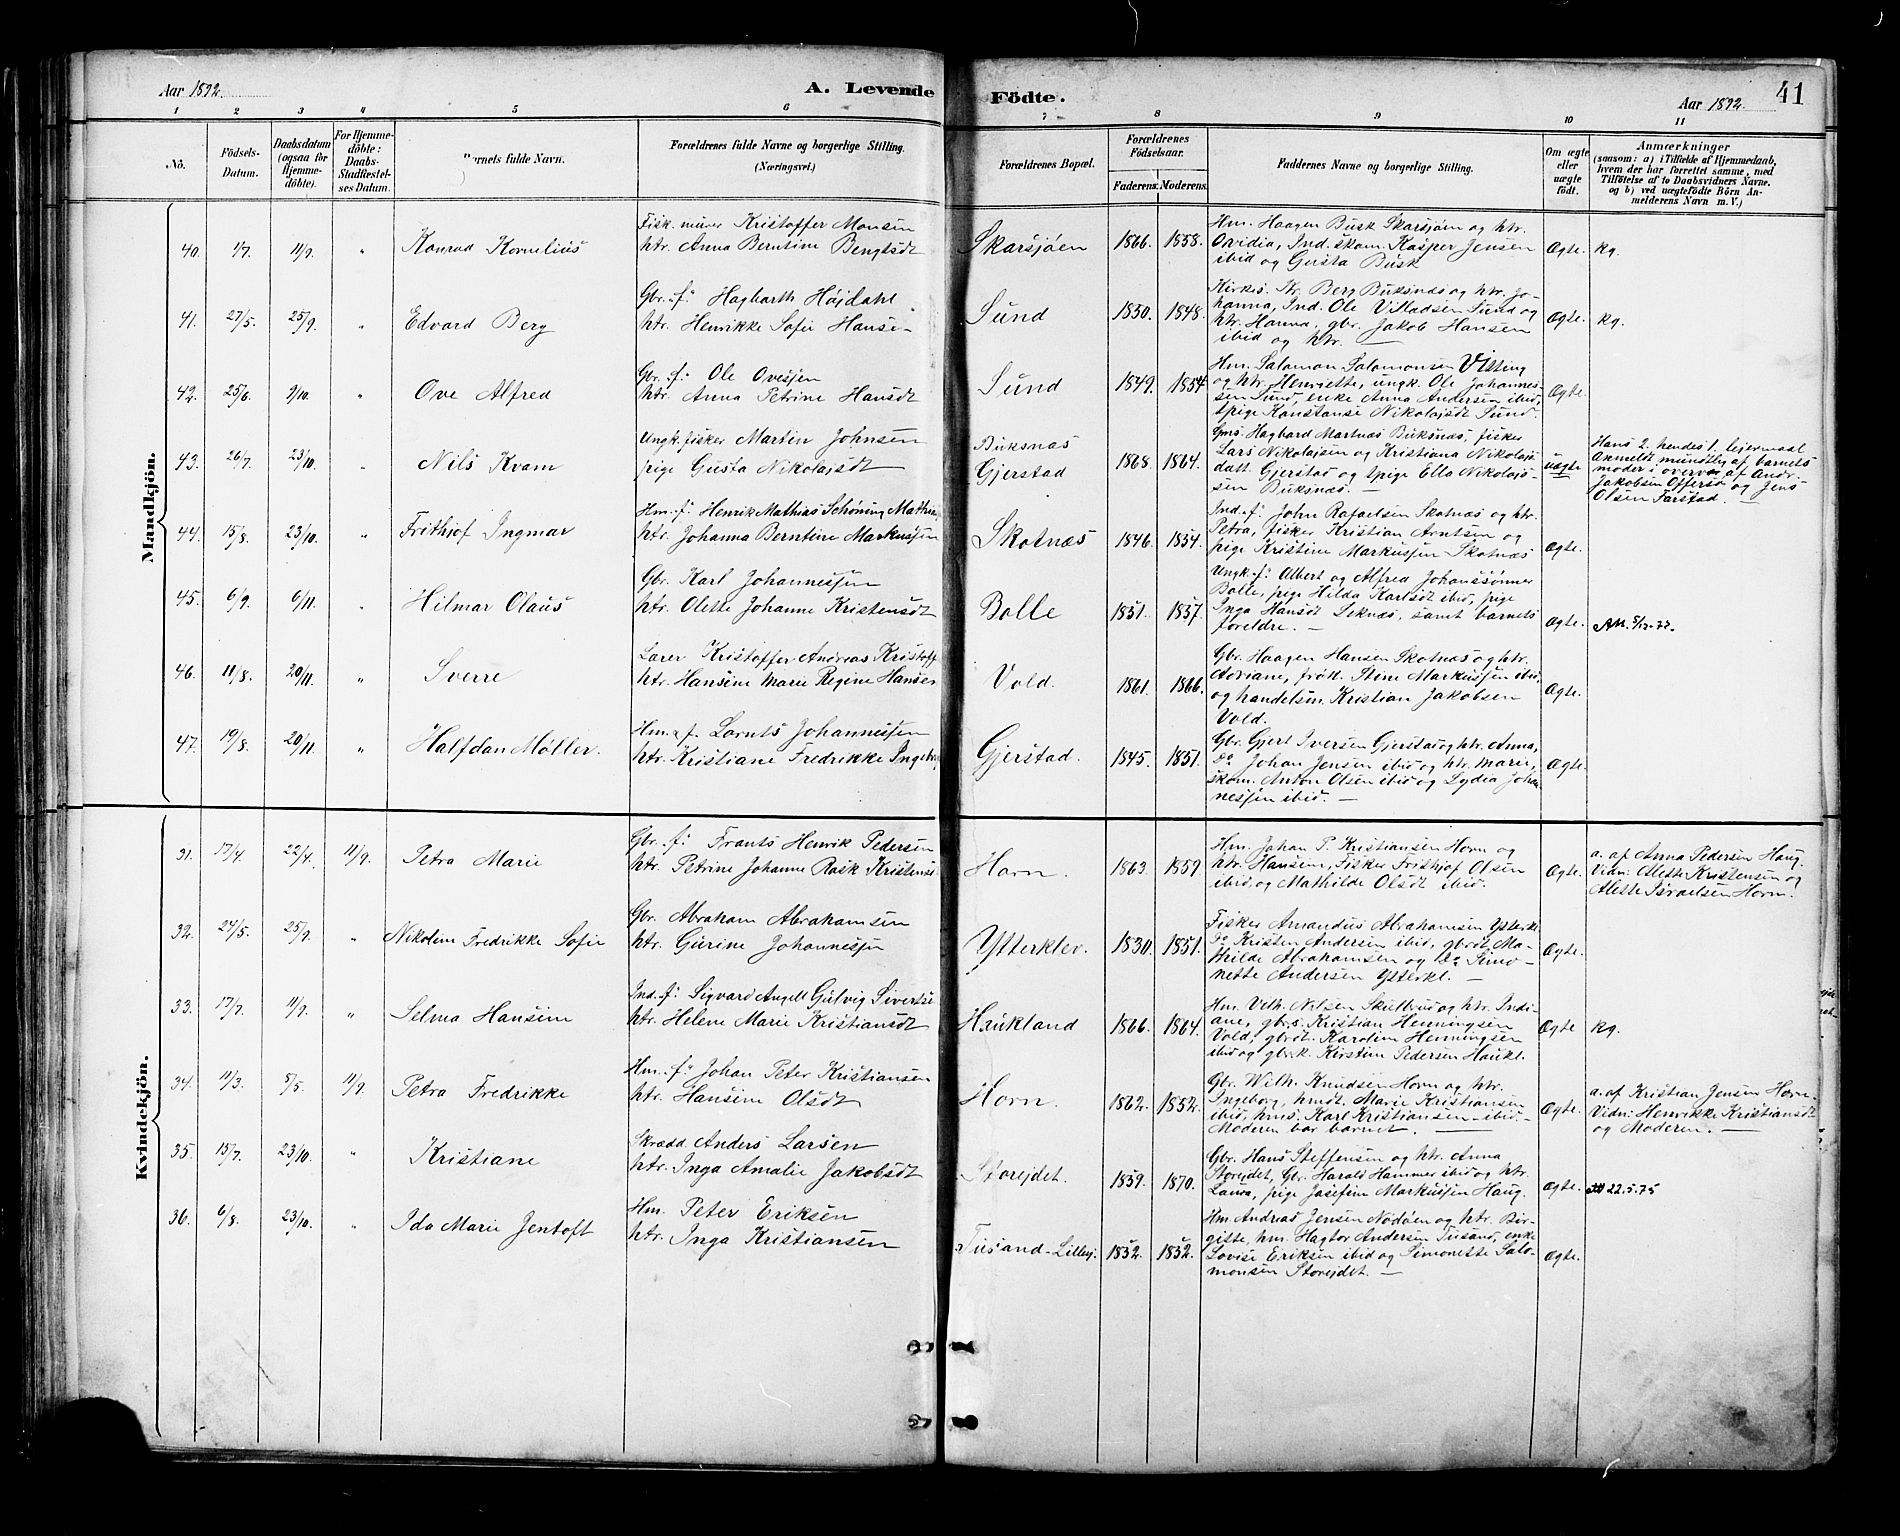 Aar 1892.
A. Levende
1 2 3 4 5 6
No.
Födsels-Datum.
Daabsdatum (ogsaa för Hjemmedöbte).
For Hjemmedöbte: Daabs-Stadfæstelses Datum.
Barnets fulde Navn.
Forældrenes fulde Navne og borgerlige Stilling.
(Næringsvei.)
Mandkjön.
40. 1/7. 11/9. " Konrad Kornelius
Fisk. murer Kristoffer Monsen
htr. Anna Berntine Bengtsdt
41. 27/5. 25/9. " Edvard Berg
Gbr. f: Hagbarth Højdahl
htr. Henrikke Sofie Hanse-
42. 25/6. 9/10. " Ove Alfred
Gbr. f: Ole Ovesjen
htr. Anna Petrine Hansdt
43. 26/7. 23/10. " Nils Kvam
Ungk. fisker Martin Johnsen
pige Gusta Nikolajsdt
44. 15/8. 23/10. " Frithjof Ingmar
Hm. f: Henrik Mathias Schøning Mathi
htr. Johanna Berntine Markussen
45. 6/9. 6/11. " Hilmar Olaus
Gbr. Karl Johannessen
htr. Olette Johanne Kristensdt
46. 11/8. 20/11. " Sverre
Lærer Kristoffer Andreas Kristoff
htr. Hansine Marie Regine Hansen
47. 19/8. 20/11. " Halfdan Møller.
Hm. f. Lornts Johannessen
htr. Kristiane Fredrikke Ingebr
Kvindekjön.
31. 17/4. 22/4. 11/9. Petra Marie
Gbr. f: Frants Henrik Pedersen
htr. Petrine Johanne Rask Kristense
32. 24/5. 25/9. " Nikoline Fredrikke Sofie
Gbr. Abraham Abrahamsen
htr. Gurine Johannessen
33. 17/7. 11/9. " Selma Hansine
Ind. f: Sigvard Angell Gulvig Sivertse
htr. Helene Marie Kristiansdt
34. 11/3. 5/5. 11/9. Petra Fredrikke
Hm. f: Johan Peter Kristiansen
htr. Hansine Olsdt
35. 15/7. 23/10. " Kristiane
Skrædd. Anders Larsen
htr. Inga Amalie Jakobsdt
36. 6/8. 23/10. " Ida Marie Jentoft
Hm. Peter Eriksen
htr. Inga Kristiansen
Födte.
Aar 1892. 41
7 8 9 10 11
Forældrenes Bopæl.
Forældrenes Födselsaar.
Faderens. Moderens.
Faddernes Navne og borgerlige Stilling.
Om ægte eller uægte födt.
Anmerkninger
(saasom: a) i Tilfælde af Hjemmedaab,
hvem der har forrettet samme, med
Tilföielse af to Daabsvidners Navne,
og b) ved uægtefödte Börn Anmelderens Navn m. V.)
Skarsjøen 1866. 1858.
Hm. Haagen Busk Skarsjøen og htr.
Ovidia, Ind. skom. Kasper Jensen
ibid og Gusta Busk
Ægte. kg.
Sund 1850. 1848.
Kirkes. Nr. Berg Buksnæs og htr. Jo-
hanna, Ind. Ole Villadsen Sund og
htr. Hanna, gbr. Jakob Hansen
ibid og htr. —
Ægte. kg.
Sund 1849. 1854.
Hm. Salamon Salomonsen Utting
og htr. Henriette, ungk. Ole Johannes-
sen Sund, enke Anna Andersen ibid,
pige Konstanse Nikolajsdt Sund.
Ægte.
Buksnæs
Gjerstad 1868. 1864.
Gms. Hagbard Martnæs Buksnæs, fisker
Lars Nikolajsen og Kristiana Nikolajs
datt. Gjerstad og pige Ella Nikolajs-
sen Buksnæs. —
uægte
Hans 2. hendes 1. lejermaal
Anmeldt mundtlig af barnets
moder i overvær af Andr.
Jakobsen Offersø og Jens
Olsen Farstad.
Skotnæs 1846. 1854.
Ind. f: John Rafaelsen Skotnæs og htr.
Petra, fisker Kristian Arntsen og
pige Kristine Markussen Skotnæs
Ægte.
Bolle 1851. 1857.
Ungk. f: Albert og Alfred Johanssønner
Bolle, pige Hilda Karlsdt ibid, pige
Inga Hansdt Leknæs, samt barnets
foreldre. —
Ægte.
Vold. 1861. 1866.
Gbr. Haagen Hansen Skotnæs og htr.
Adriane, frøk. Stine Markussen ibid,
og handelsm. Kristian Jakobsen
Vold.
Ægte.
Gjerstad. 1845. 1851.
Gbr. Gjert Iversen Gjerstad og htr. Anna,
do Johan Jensen ibid og htr. Marie,
skom. Anton Olsen ibid og Lydia Johan
nessen ibid. —
Ægte.
Horn. 1863. 1859
Hm. Johan P. Kristiansen Horn og
htr. Hansine, Fisker Frithjof Olsen
ibid, og Mathilde Olsdt ibid.
Ægte.
a. af Anna Pedersen Haug.
Vidn: Alette Kristensen og
Alette Israelsen Horn.
Ytterklev. 1830. 1851.
Fisker Amandus Abrahamsen Ytterkl.
Do Kristen Andersen ibid, gbrdt. Ma-
thilde Abrahamsen og do Simo-
nette Andersen Ytterkl. —
Ægte.
Haukland 1866. 1864.
Hm. Vilh. Nilsen Skulbrud og htr. Indi-
ane, gbr.s. Kristian Henningsen
Vold, gbrdt. Karoline Henningsen
ibid og gbr.k. Kirstine Pedersen Haukl.
Ægte kg.
Horn. 1862. 1852.
Gbr. Wilh. Knudsen Horn og htr.
Ingeborg, hmdt. Marie Kristiansen
ibid, hms. Karl Kristiansen ibid.
Moderen bar barnet. —
Ægte.
a. af Kristian Jensen Horn.
Vidn: Henrikke Kristiansdt
og Moderen. —
Storejdet. 1859. 1870.
Gbr. Hans Steffensen og htr. Anna
Storejdet, Gbr. Harald Hammer ibid og htr.
Laura, pige Josefine Markussen Haug.
Ægte. 22.5.75
Tusand-Lillej. 1852. 1852.
Hm. Andreas Jensen Nødøen og htr. Bir-
gitte, hm. Hagtor Andersen Tusand, enke
Lovise Eriksen ibid og Simonette Salo-
monsen Storejdet. —
Ægte.